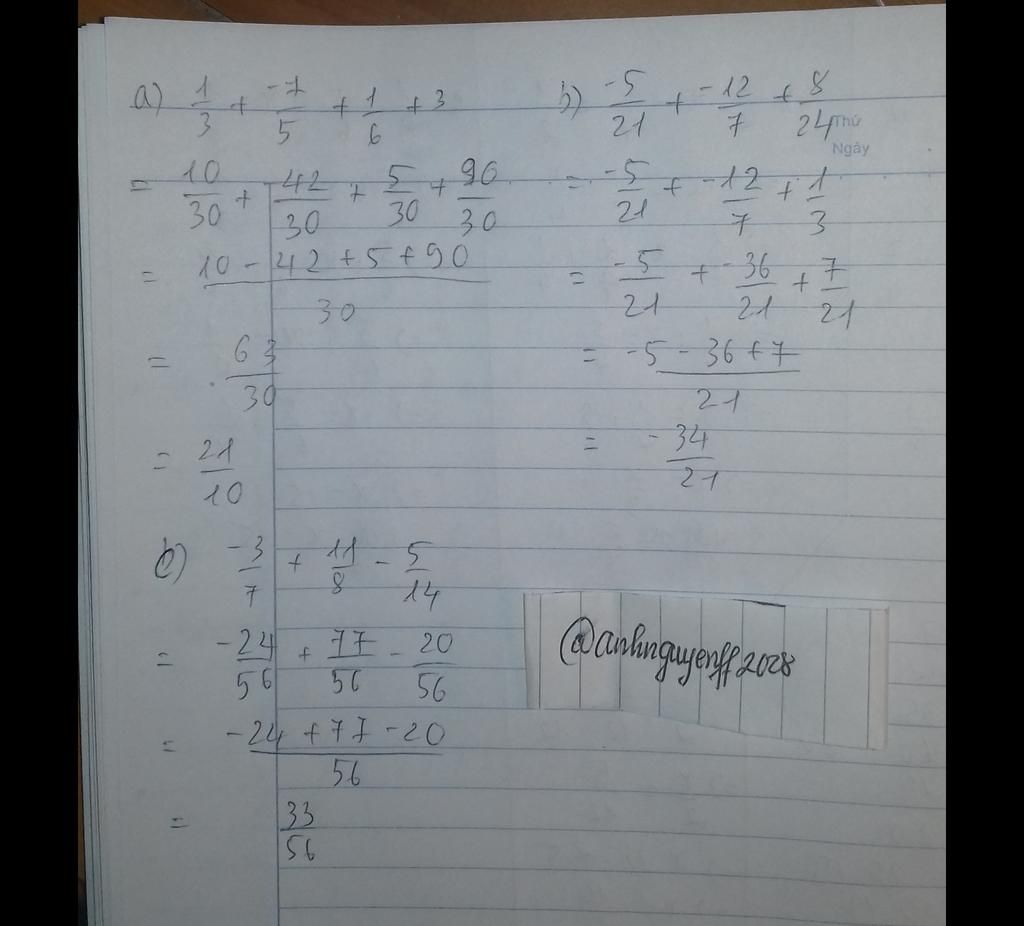 a) 1/3 + -7/5 + 1/6 + 3
= 10/30 + -42/30 + 5/30 + 90/30
= 10 - 42 + 5 + 90 / 30
= 63/30
= 21/10
b) -5/21 + -12/7 + 8/24
Thứ
Ngày
= -5/21 + -12/7 + 1/3
= -5/21 + -36/21 + 7/21
= -5 - 36 + 7 / 21
= -34/21
c) -3/7 + 11/8 - 5/14
= -24/56 + 77/56 - 20/56
= -24 + 77 - 20 / 56
= 33/56
@anhnguyenff2028